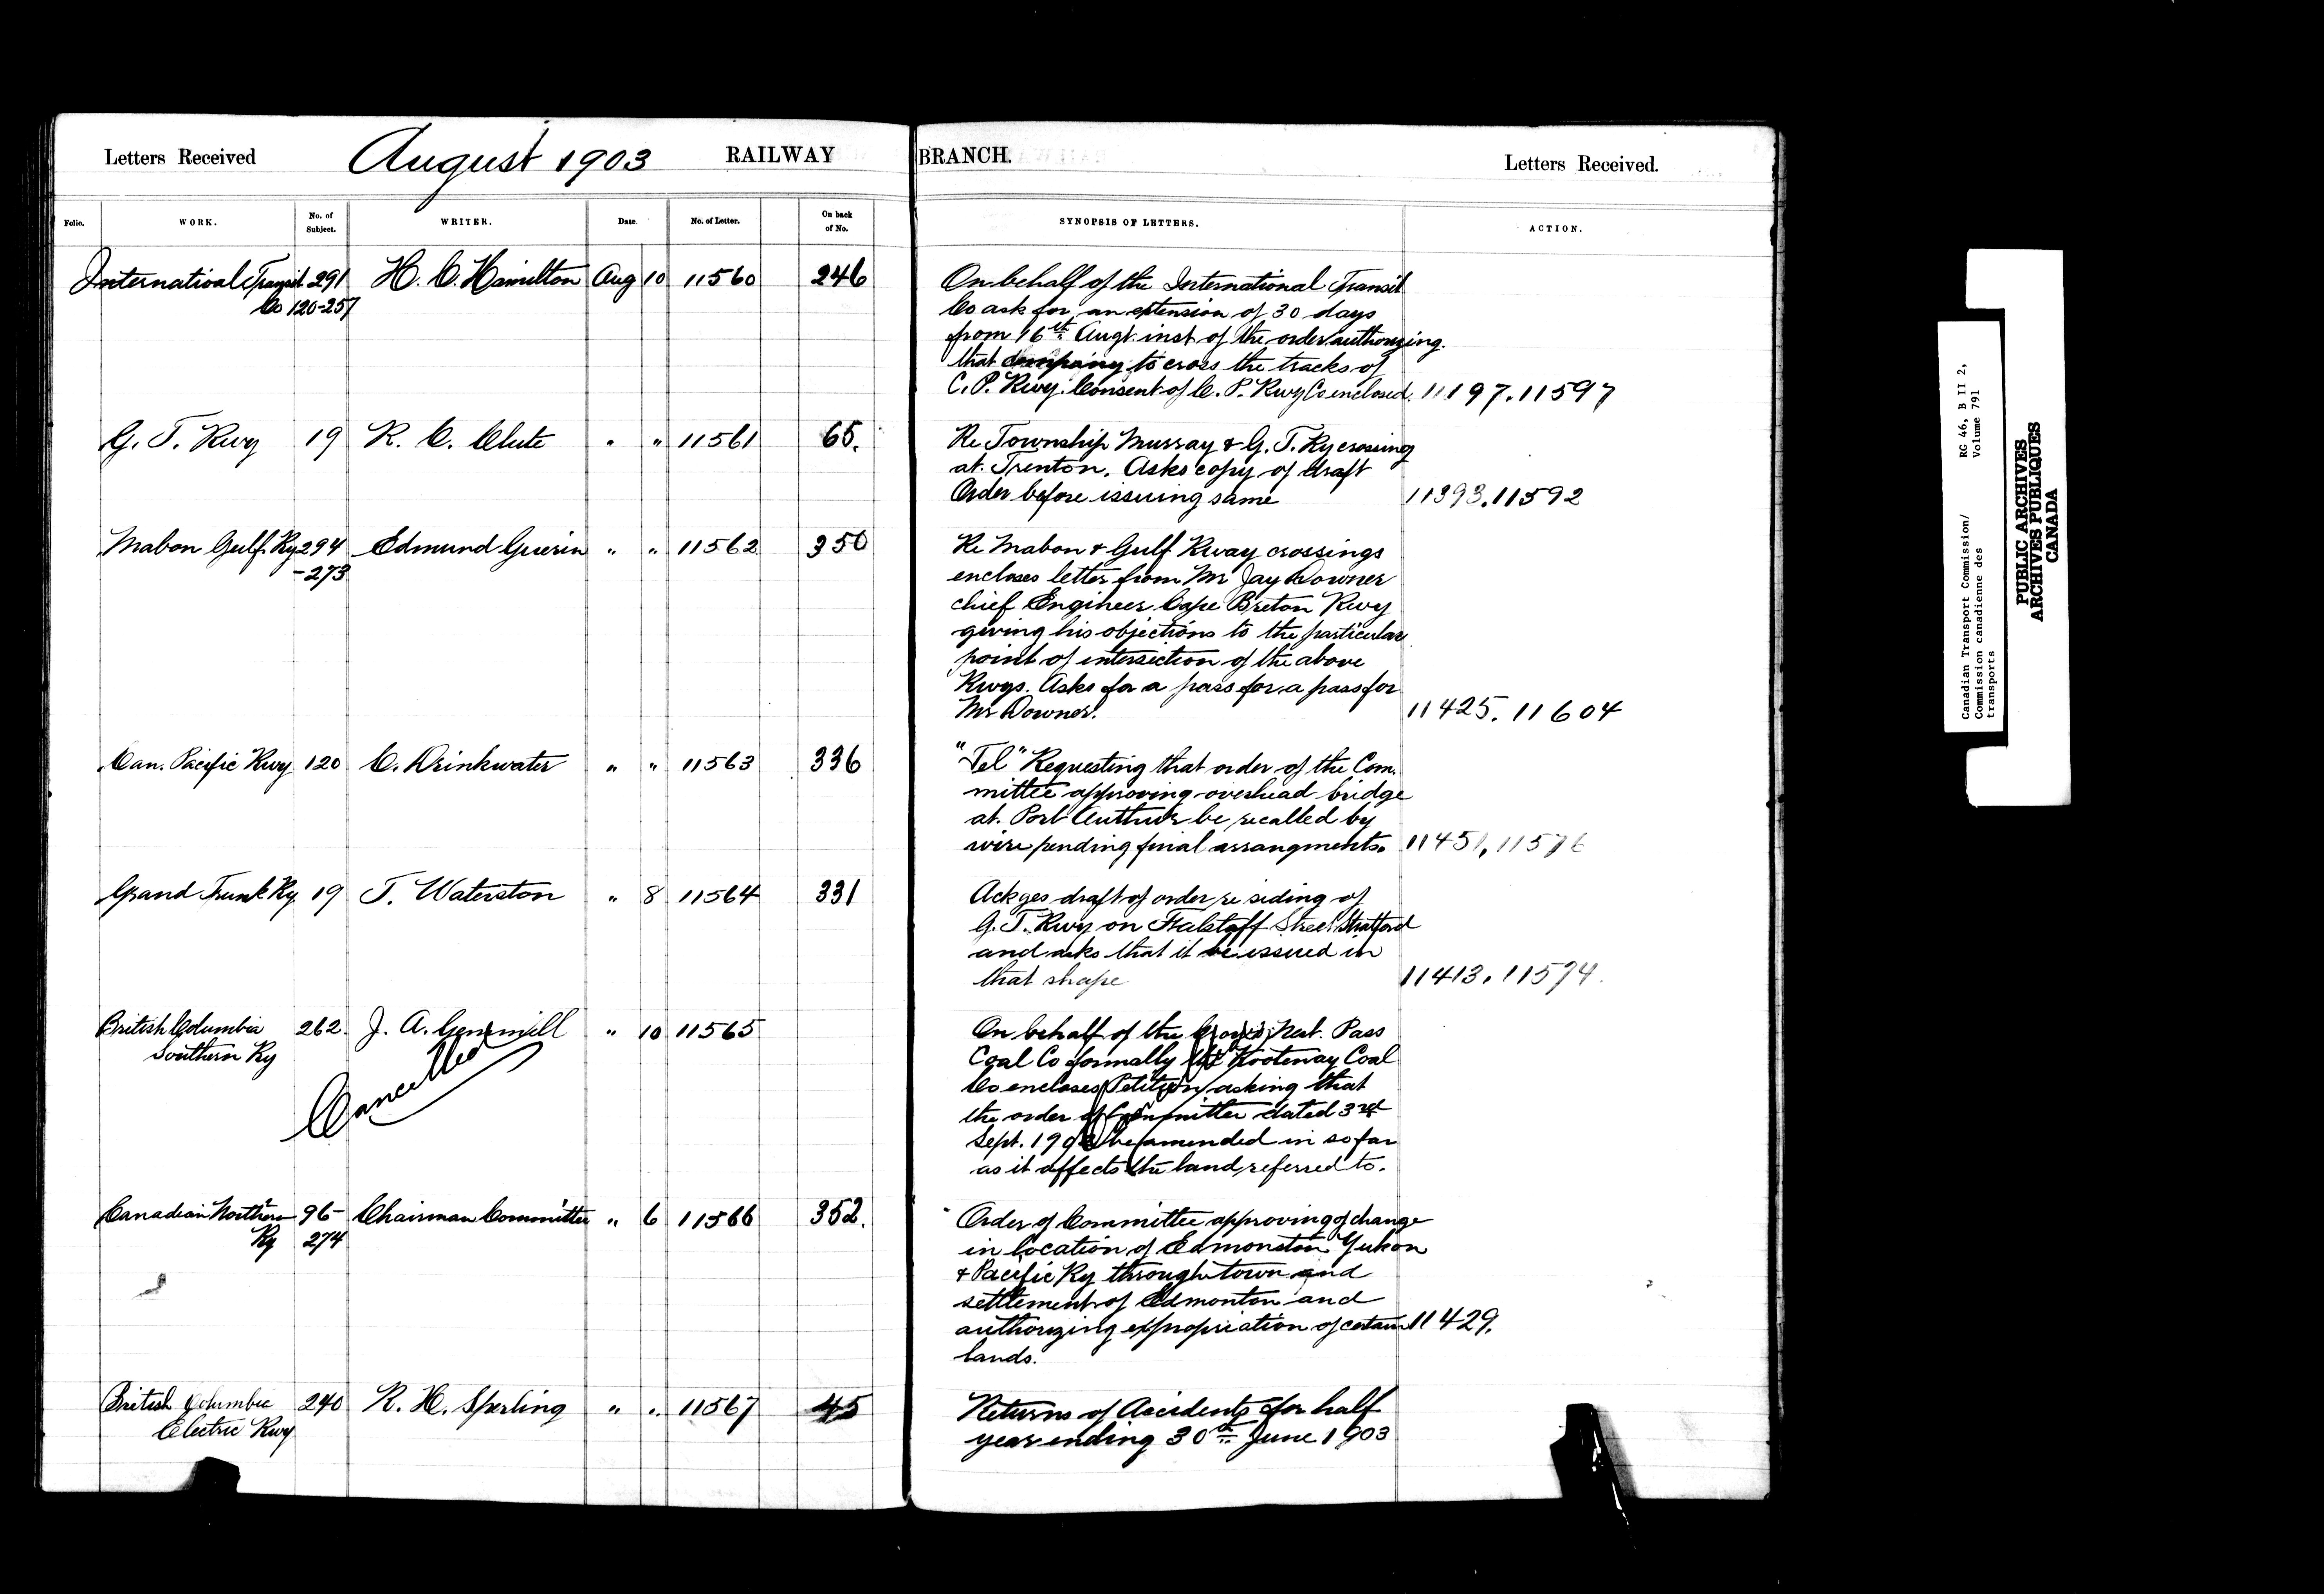 Letters Received August 1903 RAILWAY BRANCH. Letters Received.
Folio. WORK. No. of Subject. WRITER. Date. No. of Letter. On back of No. SYNOPSIS OF LETTERS. ACTION.
International Transit 291 H. C. Hamilton Aug 10 11560 246 On behalf of the International Transit
Co 120-257 Co ask for an extension of 30 days
from 16th Augt. inst of the order authorizing
that company to cross the tracks of
C. P. Rwy. Consent of C. P. Rwy Co enclosed. 11197. 11597
G. T. Rwy 19 R. C. Clute " " 11561 65. Re Township Murray & G. T. Ry crossing
at Trenton. Asks copy of draft
Order before issuing same 11393. 11592
Mabon Gulf Ry 294 Edmund Guerin " " 11562 350 Re Mabon & Gulf Rway crossings
-273 encloses letter from Mr Jay Downer
chief Engineer Cape Breton Rwy
giving his objections to the particular
point of intersection of the above
Rwys. Asks for a pass for a pass for
Mr Downer. 11425. 11604
Can. Pacific Rwy 120 C. Drinkwater " " 11563 336 "Tel" Requesting that order of the Com-
mittee approving overhead bridge
at Port Authur be recalled by
wire pending final arrangments. 11451, 11576
Grand Trunk Ry. 19 T. Waterston " 8 11564 331 Ackges draft of order re siding of
G. T. Rwy on Falstaff Street Stratford
and asks that it be issued in
that shape 11413. 11574.
British Columbia 262. J. A. Gemmill " 10 11565 On behalf of the Crows Nest Pass
Southern Ry Cancelled Coal Co formally the Kootenay Coal
Co encloses Petition asking that
the order of Committee dated 3rd
Sept. 190 be amended in so far
as it affects the land referred to.
Canadian Northern 96- Chairman Committee " 6 11566 352. Order of Committee approving of change
Ry 274 in location of Edmonston Yukon
& Pacific Ry through town and
settlement of Edmonton and
authorizing expropriation of certain 11429.
lands.
British Columbia 240 R. H. Sperling " " 11567 45 Returns of Accidents for half
Electric Rwy year ending 30th June 1903
Canadian Transport Commission/ RG 46, B II 2,
Commission canadienne des Volume 791
transports
PUBLIC ARCHIVES
ARCHIVES PUBLIQUES
CANADA